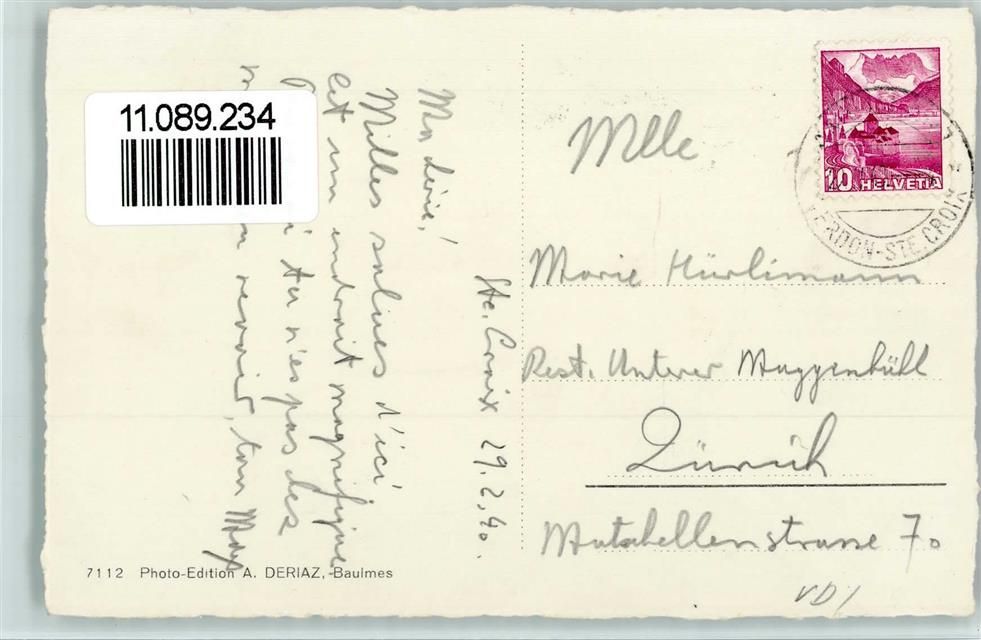 11.089.234
Ste. Croix 29.2.40.
Ma chérie!
Milles salues d'ici
c'est un endroit magnifique
tu n'es pas des
revoir, ton Max
Mlle
Marie Hürlimann
Rest. Unterer Muggenbühl
Zürich
Mutschellenstrasse 70
10 HELVETIA
YERDON-STE.CROIX
7112 Photo-Edition A. DERIAZ, Baulmes
VD1